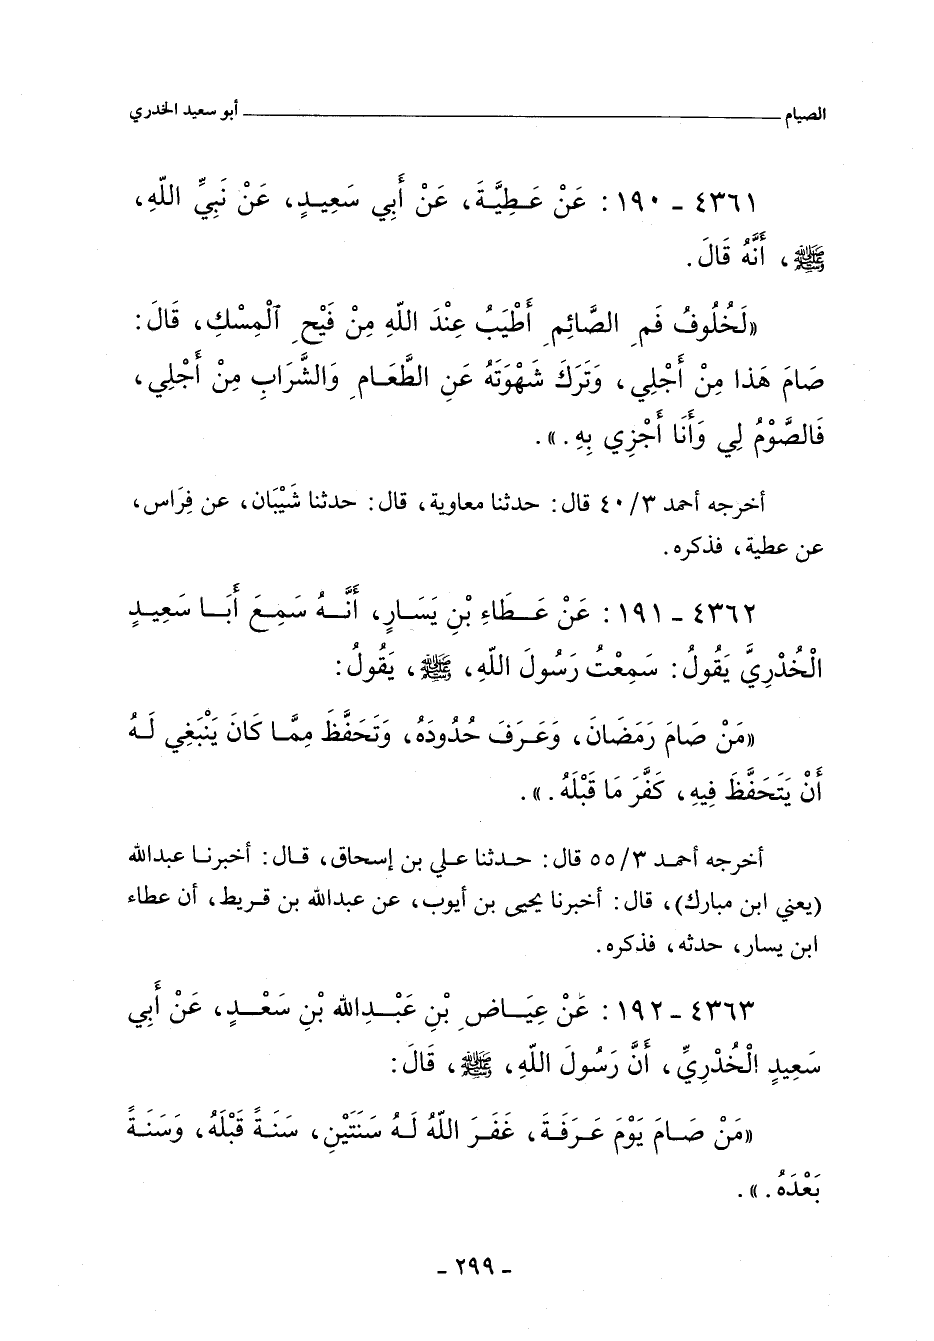 الصيام ــــــــ أبو سعيد الخدري
٤٣٦١ - ١٩٠ : عَنْ عَطِيَّةَ، عَنْ أَبِي سَعِيدٍ، عَنْ نَبِيِّ اللّهِ،
ﷺ، أَنَّهُ قَالَ.
«لَخُلُوفُ فَمِ الصَّائِمِ أَطْيَبُ عِنْدَ اللّهِ مِنْ فَيْحِ ٱلْمِسْكِ، قَالَ:
صَامَ هَذَا مِنْ أَجْلِي، وَتَرَكَ شَهْوَتَهُ عَنِ الطَّعَامِ وَالشَّرَابِ مِنْ أَجْلِي،
فَالصَّوْمُ لِي وَأَنَا أَجْزِي بِهِ.».
أخرجه أحمد ٣/ ٤٠ قال: حدثنا معاوية، قال: حدثنا شَيْبَان، عن فِرَاس،
عن عطية، فذكره.
٤٣٦٢ - ١٩١ : عَنْ عَطَاءِ بْنِ يَسَارٍ، أَنَّهُ سَمِعَ أَبَا سَعِيدٍ
الْخُدْرِيَّ يَقُولُ: سَمِعْتُ رَسُولَ اللّهِ، ﷺ، يَقُولُ:
«مَنْ صَامَ رَمَضَانَ، وَعَرَفَ حُدُودَهُ، وَتَحَفَّظَ مِمَّا كَانَ يَنْبَغِي لَهُ
أَنْ يَتَحَفَّظَ فِيهِ، كَفَّرَ مَا قَبْلَهُ.».
أخرجه أحمد ٣/ ٥٥ قال: حدثنا علي بن إسحاق، قال: أخبرنا عبدالله
(يعني ابن مبارك)، قال: أخبرنا يحيى بن أيوب، عن عبدالله بن قريط، أن عطاء
ابن يسار، حدثه، فذكره.
٤٣٦٣ - ١٩٢ : عَنْ عِيَاضِ بْنِ عَبْدِالله بْنِ سَعْدٍ، عَنْ أَبِي
سَعِيدٍ الْخُدْرِيِّ، أَنَّ رَسُولَ اللّهِ، ﷺ، قَالَ:
«مَنْ صَامَ يَوْمَ عَرَفَةَ، غَفَرَ اللّهُ لَهُ سَنَتَيْنِ، سَنَةً قَبْلَهُ، وَسَنَةً
بَعْدَهُ.».
- ٢٩٩ -